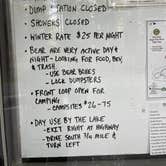 • DUMP STATION CLOSED
• SHOWERS CLOSED
• WINTER RATE $25 PER NIGHT
• BEAR ARE VERY ACTIVE DAY &
NIGHT - LOOKING FOR FOOD,
& TRASH
- USE BEAR BOXES
- LOCK DUMPSTERS
• FRONT LOOP OPEN FOR
CAMPING
- CAMPSITES #26-75
• DAY USE BY THE LAKE
- EXIT RIGHT AT HIGHWAY
- DRIVE SOUTH 3/4 MILE &
TURN LEFT